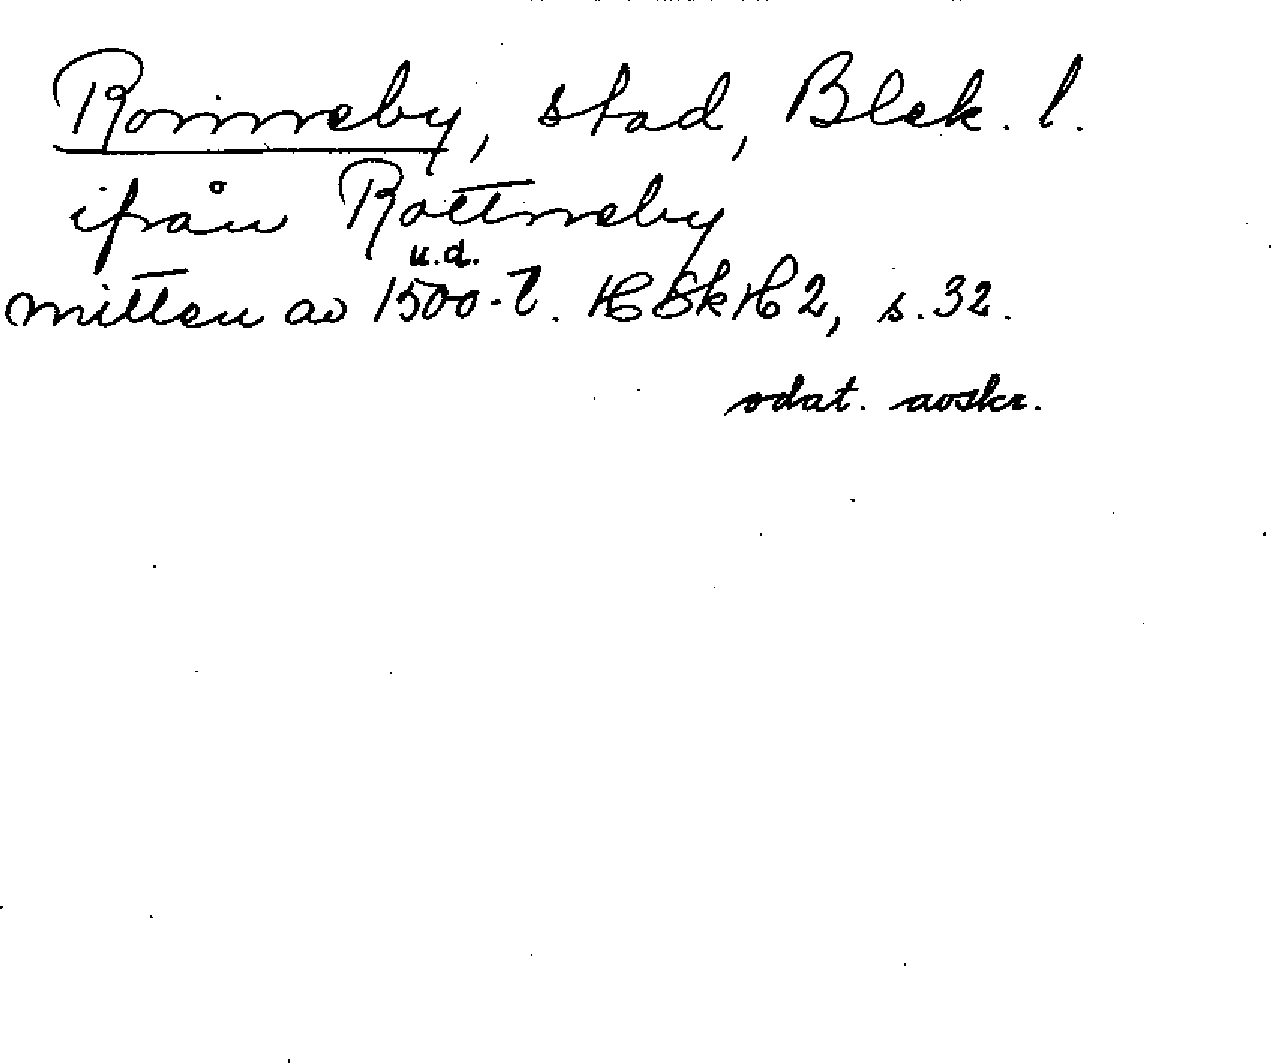 Ronneby, stad, Blek. l.
ifrån Rottneby
u.d.
mitten av 1500-t. HSkH 2, s. 32.
odat. avskr.